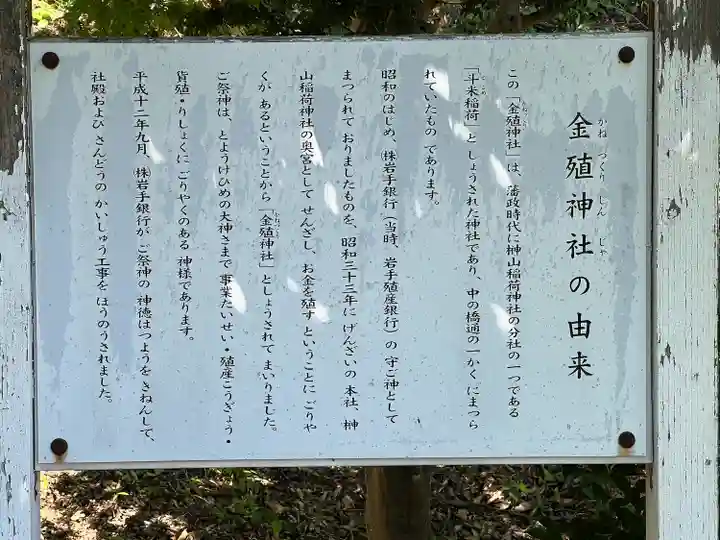 金殖神社の由来
かね つくり じん じゃ
この「金殖神社」は、藩政時代に榊山稲荷神社の分社の一つである
「斗米稲荷」と しょうされた神社であり、中の橋通の一かく にまつら
れていたもの であります。
昭和のはじめ、㈱岩手銀行(当時、岩手殖産銀行)の 守ご神として
まつられて おりましたものを、昭和三十三年に げんざいの 本社、榊
山稲荷神社の奥宮として せんざし、お金を殖す ということに ごりや
くが あるということから「金殖神社」としょうされて まいりました。
ご祭神は、とようけひめの大神さまで 事業たいせい・殖産こうぎょう・
貨殖・りしょくに ごりやくのある 神様であります。
平成十二年九月、㈱岩手銀行が ご祭神の 神徳はつようを きねんして、
社殿および さんどうの かいしゅう工事を ほうのうされました。